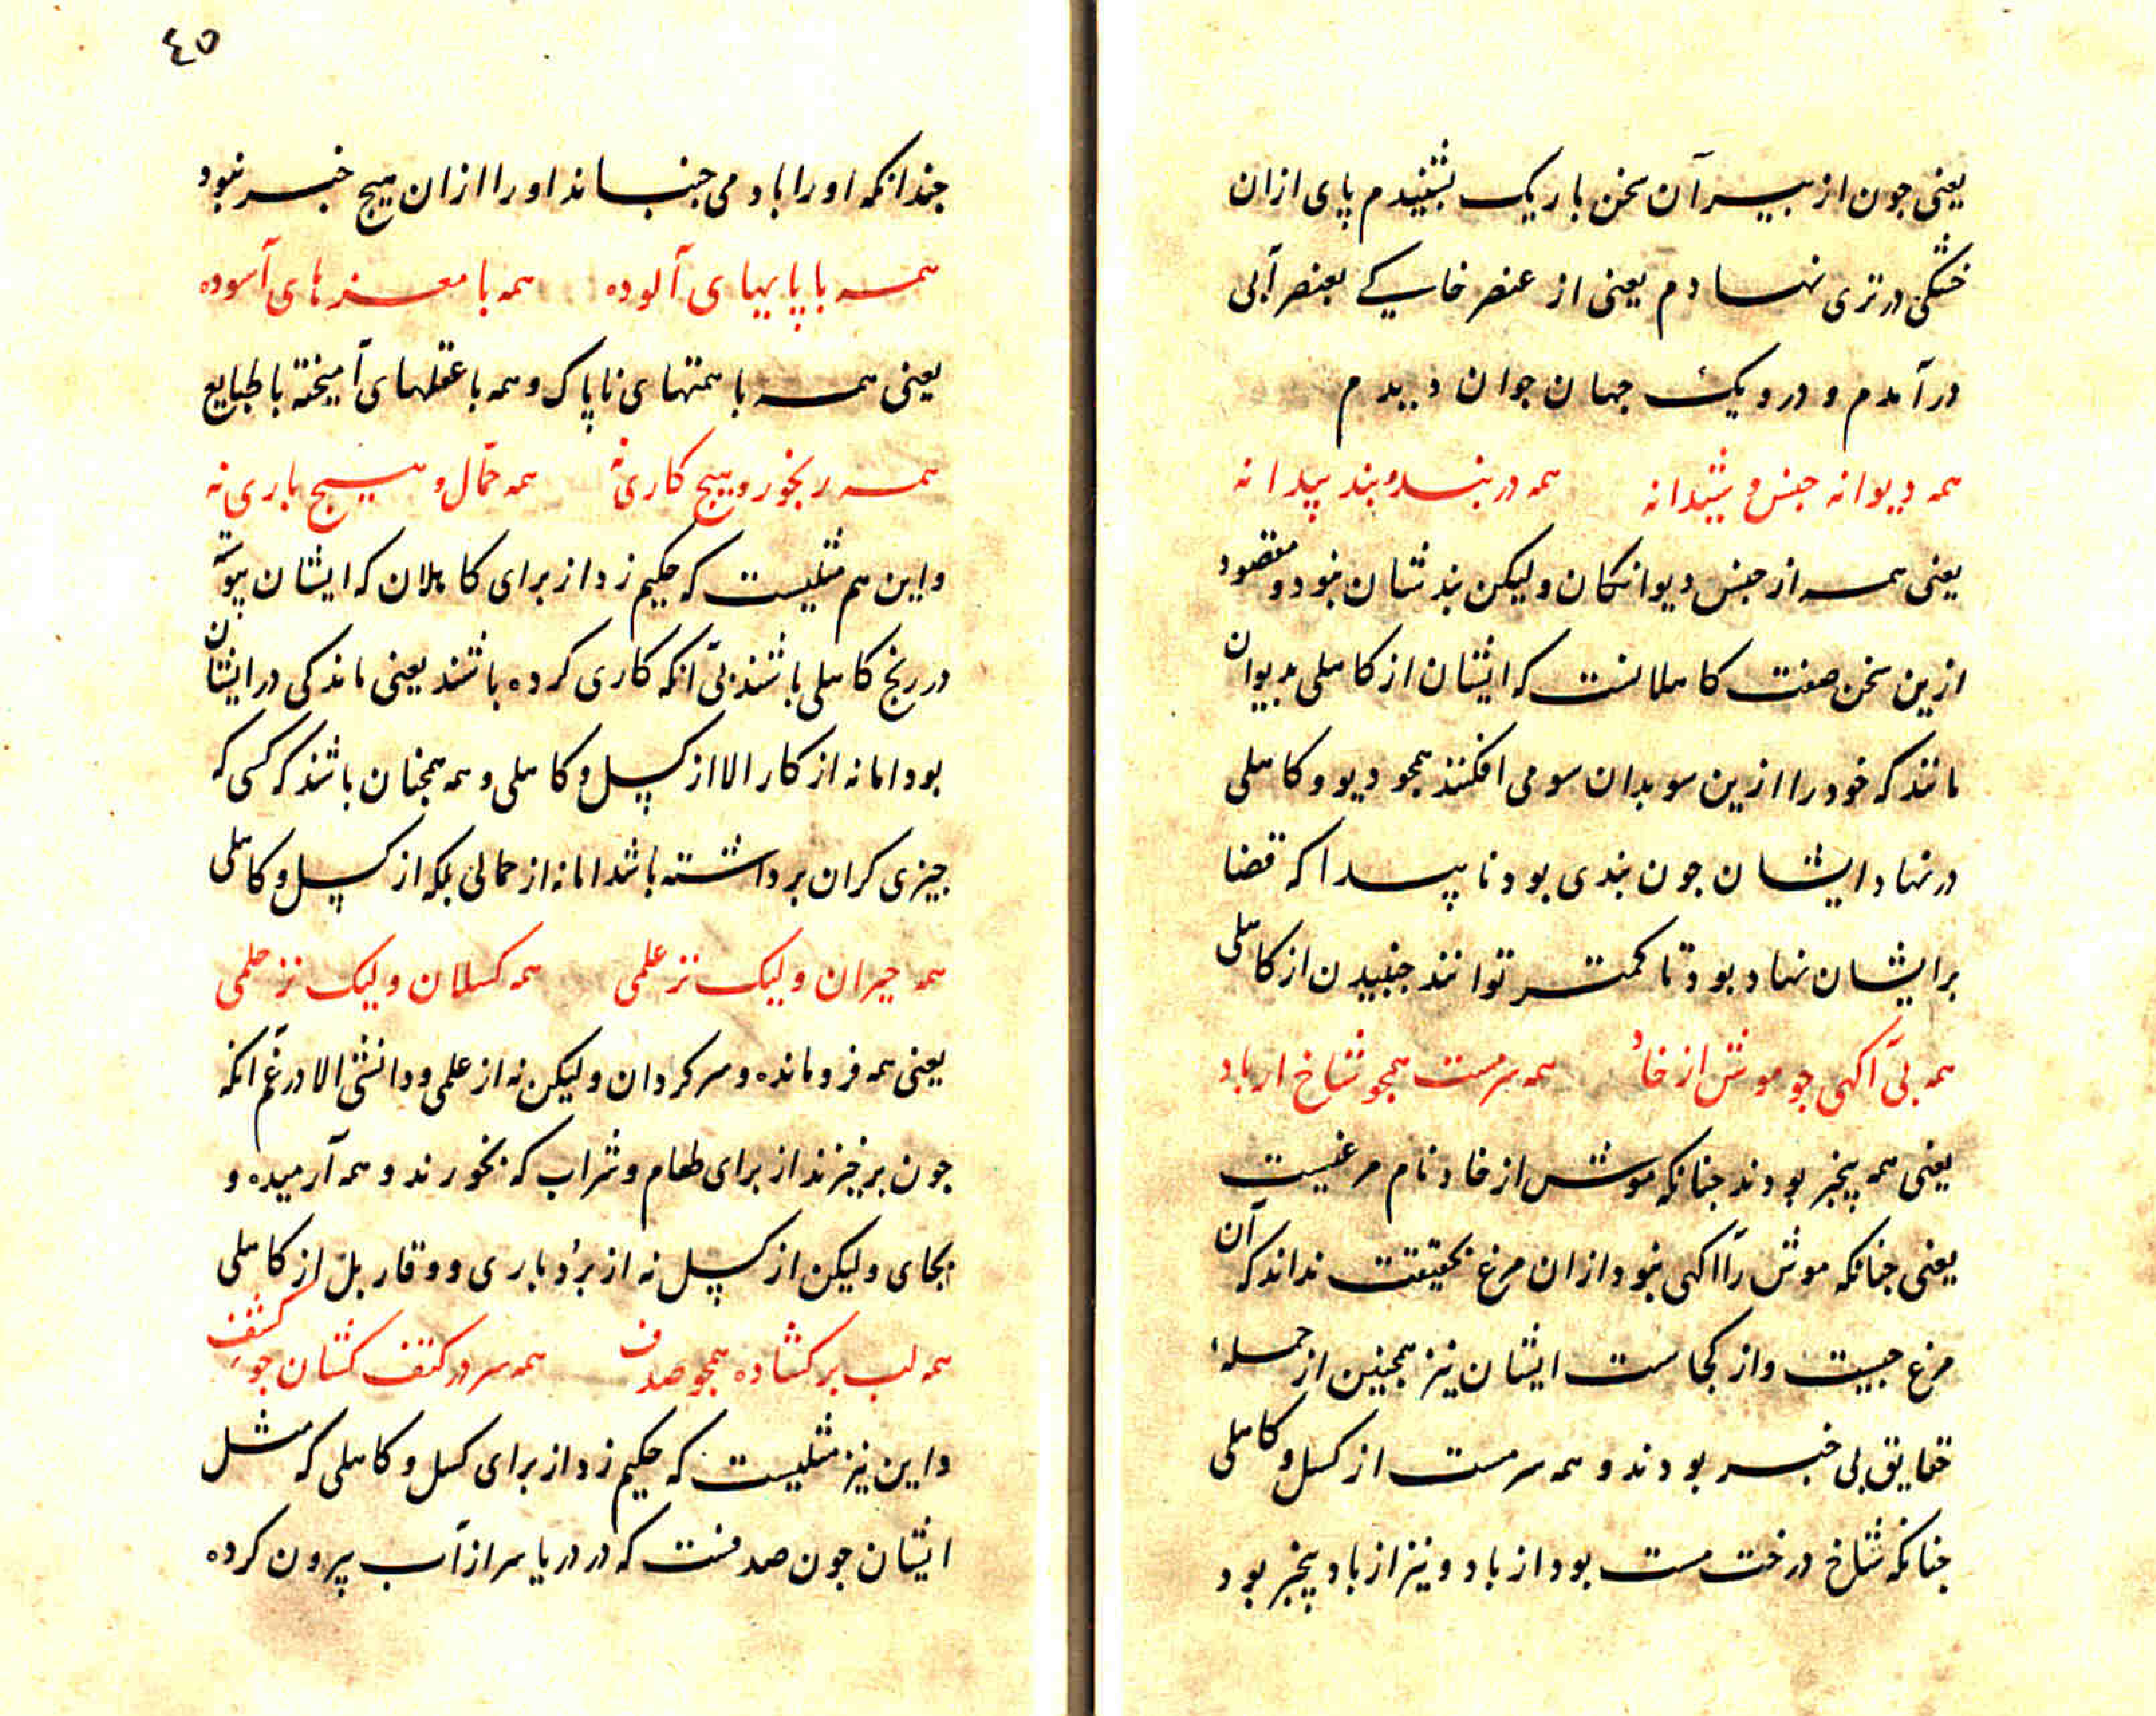 یعنی جون از پیر آن سخن باریک بشنیدم پای ازان
خشکی در تری نهادم یعنی از عنصر خاکی بعنصر آبی
درآمدم و درو یک جهان جوان دیدم
همه دیوانه جنس و شیدا نه همه در بند و بند پیدا نه
یعنی همه از جنس دیوانکان ولیکن بندشان نبود و مقصود
ازین سخن صفت کاهلانست که ایشان از کاهلی بدیوان
مانند که خود را ازین سو بدان سو می افکنند همجو دیو و کاهلی
در نهاد ایشان جون بندی بود ناپیدا که قضا
بر ایشان نهاد بود تا کمتر توانند جنبیدن از کاهلی
همه بی آکهی جو موش از خاد همه سرمست همجو شاخ از باد
یعنی همه بیخبر بودند جنانکه موش از خاد نام مرغیست
یعنی جنانکه موش را آکهی نبود ازان مرغ بحقیقت نداند که آن
مرغ جیست و از کجاست ایشان نیز همجنین از جمله
حقایق بی خبر بودند و همه سرمست از کسل و کاهلی
جنانکه شاخ درخت مست بود از باد و نیز از باد بیخبر بود
٤٥
جندانکه او را باد می جنباند او را ازان هیج خبر نبود
همه با پایهای آلوده همه با مغزهای آسوده
یعنی همه با همتهای ناپاک و همه با عقلهای آمیخته با طبایع
همه رنجور و هیج کاری نه همه حمّال و هیج باری نه
و این هم مثلیست که حکیم زد از برای کاهلان که ایشان پیوسته
در رنج کاهلی باشند بی آنکه کاری کرده باشند یعنی ماندکی در ایشان
بود اما نه از کار الا از کسل و کاهلی و همه همجنان باشند که کسی که
جیزی کران برداشته باشد اما نه از حمالی بلکه از کسل و کاهلی
همه حیران ولیک نز علمی همه کسلان ولیک نز حلمی
یعنی همه فرومانده و سرکردان ولیکن نه از علمی و دانشی الا در غم آنکه
جون برخیزند از برای طعام و شراب که بخورند و همه آرمیده و
بجای ولیکن از کسل نه از بردباری و وقار بل از کاهلی
همه لب برکشاده همجو صدف همه سر در کتف کشان جو کشف
و این نیز مثلیست که حکیم زد از برای کسل و کاهلی که مثل
ایشان جون صدفست که در دریا سر از آب بیرون کرده